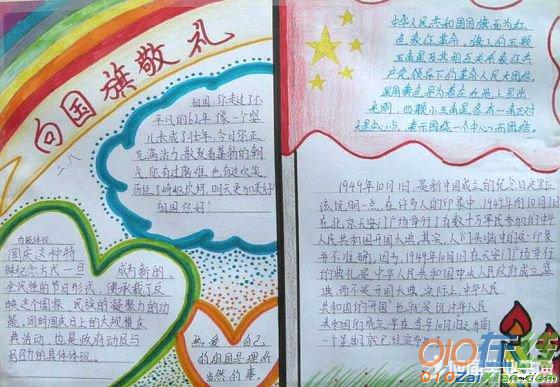 向国旗敬礼
二八
祖国,你走过了不
平凡的62年,像一个婴
儿长成了壮年,今日你正
充满活力,散发着蓬勃的朝
气,你有过磨难,也有过欢笑
历经了崎岖坎坷,明天更加美好
祖国您好!
功能体现
国庆这种特
殊纪念方式一旦
成为新的、
全民性的节日形式,便承载了反
映这个国家、民族的凝聚力的功
能。同时国庆日上的大规模庆
典活动,也是政府动员与
号召力的具体体现。
热爱自己
的祖国是理所
当然的事。
中华人民共和国国旗旗面为红
色,象征革命。旗上的五颗
五角星及其相互关系象征共
产党领导下的革命人民大团结。
星用黄色是为着在红地上显出
光明,四颗小五角星各有一尖正对
大星中心点,表示围绕一个中心而团结。
1949年10月1日,是新中国成立的纪念日。这里应
该说明一点,在许多人的印象中,1949年的10月1日
在北京天安门广场举行了有数十万军民参加的中华
人民共和国开国大典。其实,人们头脑中的这一印象
并不准确。因为,1949年10月1日在天安门广场举行
的典礼是中华人民共和国中央人民政府成立盛
典,而不是开国大典。实际上,中华人民
共和国的"开国",也就是说中华人民
共和国的成立,早在当年10月1日之前
一个星期就已经宣布
010在线
010zaixian